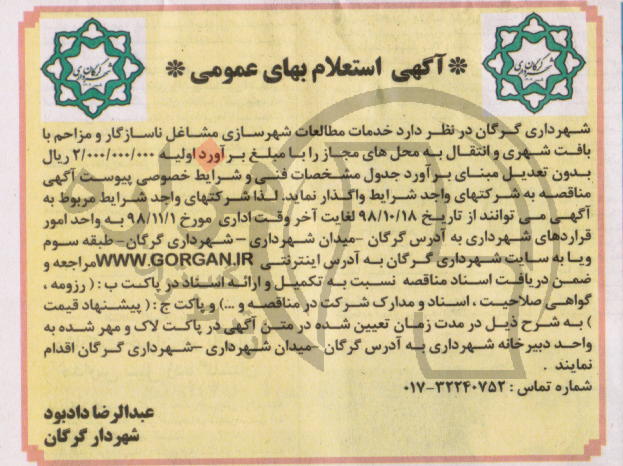 * آگهی استعلام بهای عمومی *
شهرداری گرگان در نظر دارد خدمات مطالعات شهرسازی مشاغل ناسازگار و مزاحم با
بافت شهری و انتقال به محل های مجاز را با مبلغ برآورد اولیه ۲/۰۰۰/۰۰۰/۰۰۰ ریال
بدون تعدیل مبنای برآورد جدول مشخصات فنی و شرایط خصوصی پیوست آگهی
مناقصه به شرکتهای واجد شرایط واگذار نماید. لذا شرکتهای واجد شرایط مربوط به
آگهی می توانند از تاریخ ۹۸/۱۰/۱۸ لغایت آخر وقت اداری مورخ ۹۸/۱۱/۱ به واحد امور
قراردهای شهرداری به آدرس گرگان -میدان شهرداری – شهرداری گرگان- طبقه سوم
ویا به سایت شهرداری گرگان به آدرس اینترنتی WWW.GORGAN.IR مراجعه و
ضمن دریافت اسناد مناقصه نسبت به تکمیل و ارائه اسناد در پاکت ب : ( رزومه ،
گواهی صلاحیت ، اسناد و مدارک شرکت در مناقصه و ...) و پاکت ج : ( پیشنهاد قیمت
) به شرح ذیل در مدت زمان تعیین شده در متن آگهی در پاکت لاک و مهر شده به
واحد دبیرخانه شهرداری به آدرس گرگان -میدان شهرداری –شهرداری گرگان اقدام
نمایند .
شماره تماس : ۳۲۲۴۰۷۵۲-۰۱۷
عبدالرضا دادبود
شهردار گرگان